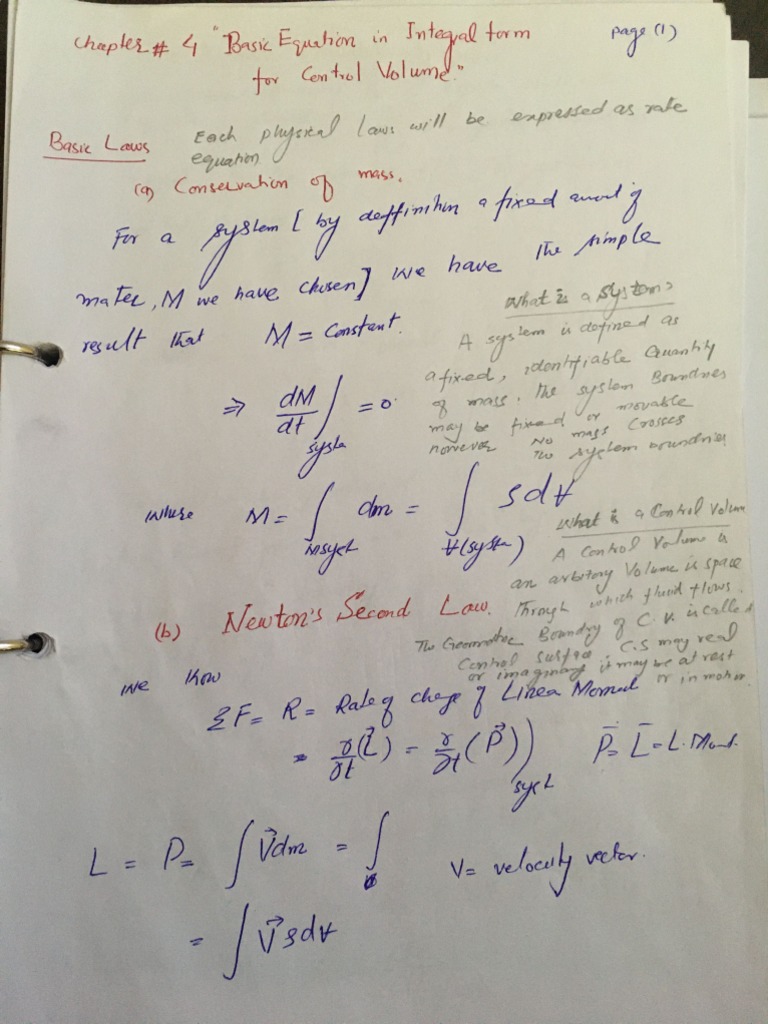 Chapter # 4 "Basic Equation in Integral form
page (1)
for Control Volume."
Basic Laws Each physical laws will be expressed as rate
equation
(a) Conservation of mass.
For a system [ by deffinition a fixed amout of
matter, M we have chosen] we have the simple
result that M = Constant.
What is a system?
A system is defined as
a fixed, identifiable Quantity
of mass. The system Boundries
may be fixed or movable
however No mass Crosses
The system boundries
⇒ dM/dt)system = 0
where M = ∫M syst dm = ∫V(system) ρdV
What is a Control Volume
A Control Volume is
an arbitory Volume is space
Through which fluid flows.
The Geometric Boundry of C.V. is called
Control Surface C.S may real
or imaginary it may be at rest
or in motion
(b) Newton's Second Law.
we know
ΣF = R = Rate of chage of Linear Moment
= ∂/∂t(L⃗) = ∂/∂t(P⃗))syst P̄ = L̄ = L. Mom.
L = P = ∫V⃗dm = ∫ V = velocity vector.
= ∫V⃗ρdV